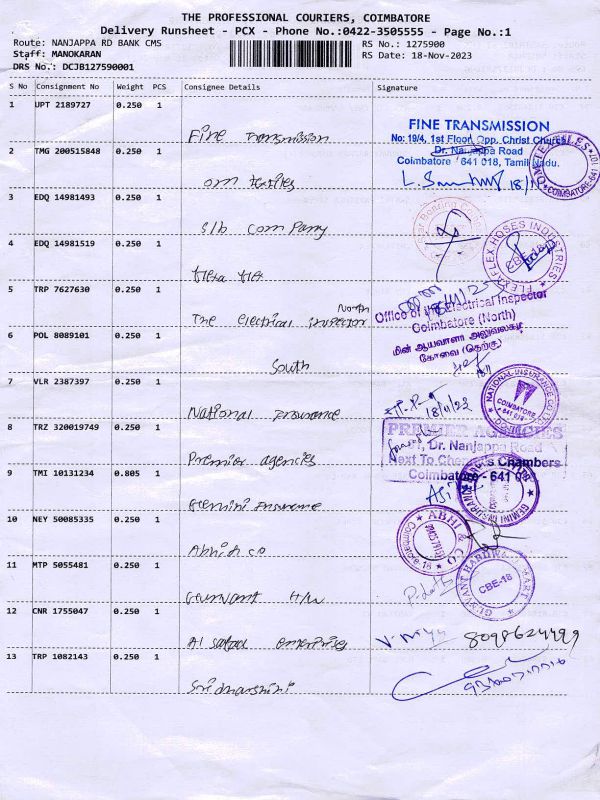 THE PROFESSIONAL COURIERS, COIMBATORE
Delivery Runsheet - PCX - Phone No.:0422-3505555 - Page No.:1
Route: NANJAPPA RD BANK CMS
Staff: MANOKARAN
DRS No.: DCJB127590001
RS No.: 1275900
RS Date: 18-Nov-2023
S No Consignment No Weight PCS Consignee Details Signature
1 UPT 2189727 0.250 1 Fine Transmission
FINE TRANSMISSION
No: 19/4, 1st Floor, Opp. Christ Church
Dr. Nanjappa Road
Coimbatore - 641 018, Tamil Nadu.
2 TMG 200515848 0.250 1 om textiles
3 EDQ 14981493 0.250 1 S/b Company
4 EDQ 14981519 0.250 1 flexa flex
FLEXAFLEX HOSES INDUSTRIES
CBE-18
5 TRP 7627630 0.250 1 The electrical inspector North
Office of the Electrical Inspector
Coimbatore (North)
6 POL 8089101 0.250 1 South
மின் ஆய்வாளர் அலுவலகம்
கோவை (தெற்கு)
7 VLR 2387397 0.250 1 National Insurance
NATIONAL INSURANCE CO
COIMBATORE
8 TRZ 320019749 0.250 1 Premier agencies
PREMIER AGENCIES
Dr. Nanjappa Road
Next To Chambers
Coimbatore - 641 018
9 TMI 10131234 0.805 1 Gemini Insurance
GEMINI INSURANCE
10 NEY 50085335 0.250 1 Abhi & co
ABHI & CO
Coimbatore-18
11 MTP 5055481 0.250 1 Gurvant H/w
HARDWARE MART
CBE-18
12 CNR 1755047 0.250 1 Al enterprises
8098624499
13 TRP 1082143 0.250 1 Sridharshini